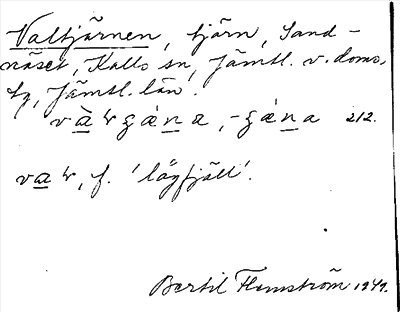 Valtjärnen, tjärn, Sand-
näset, Kalls sn, Jämtl. v. doms.
tg, Jämtl. län.
212.
f. 'lågfjäll'.
Bertil Flemström 1949.